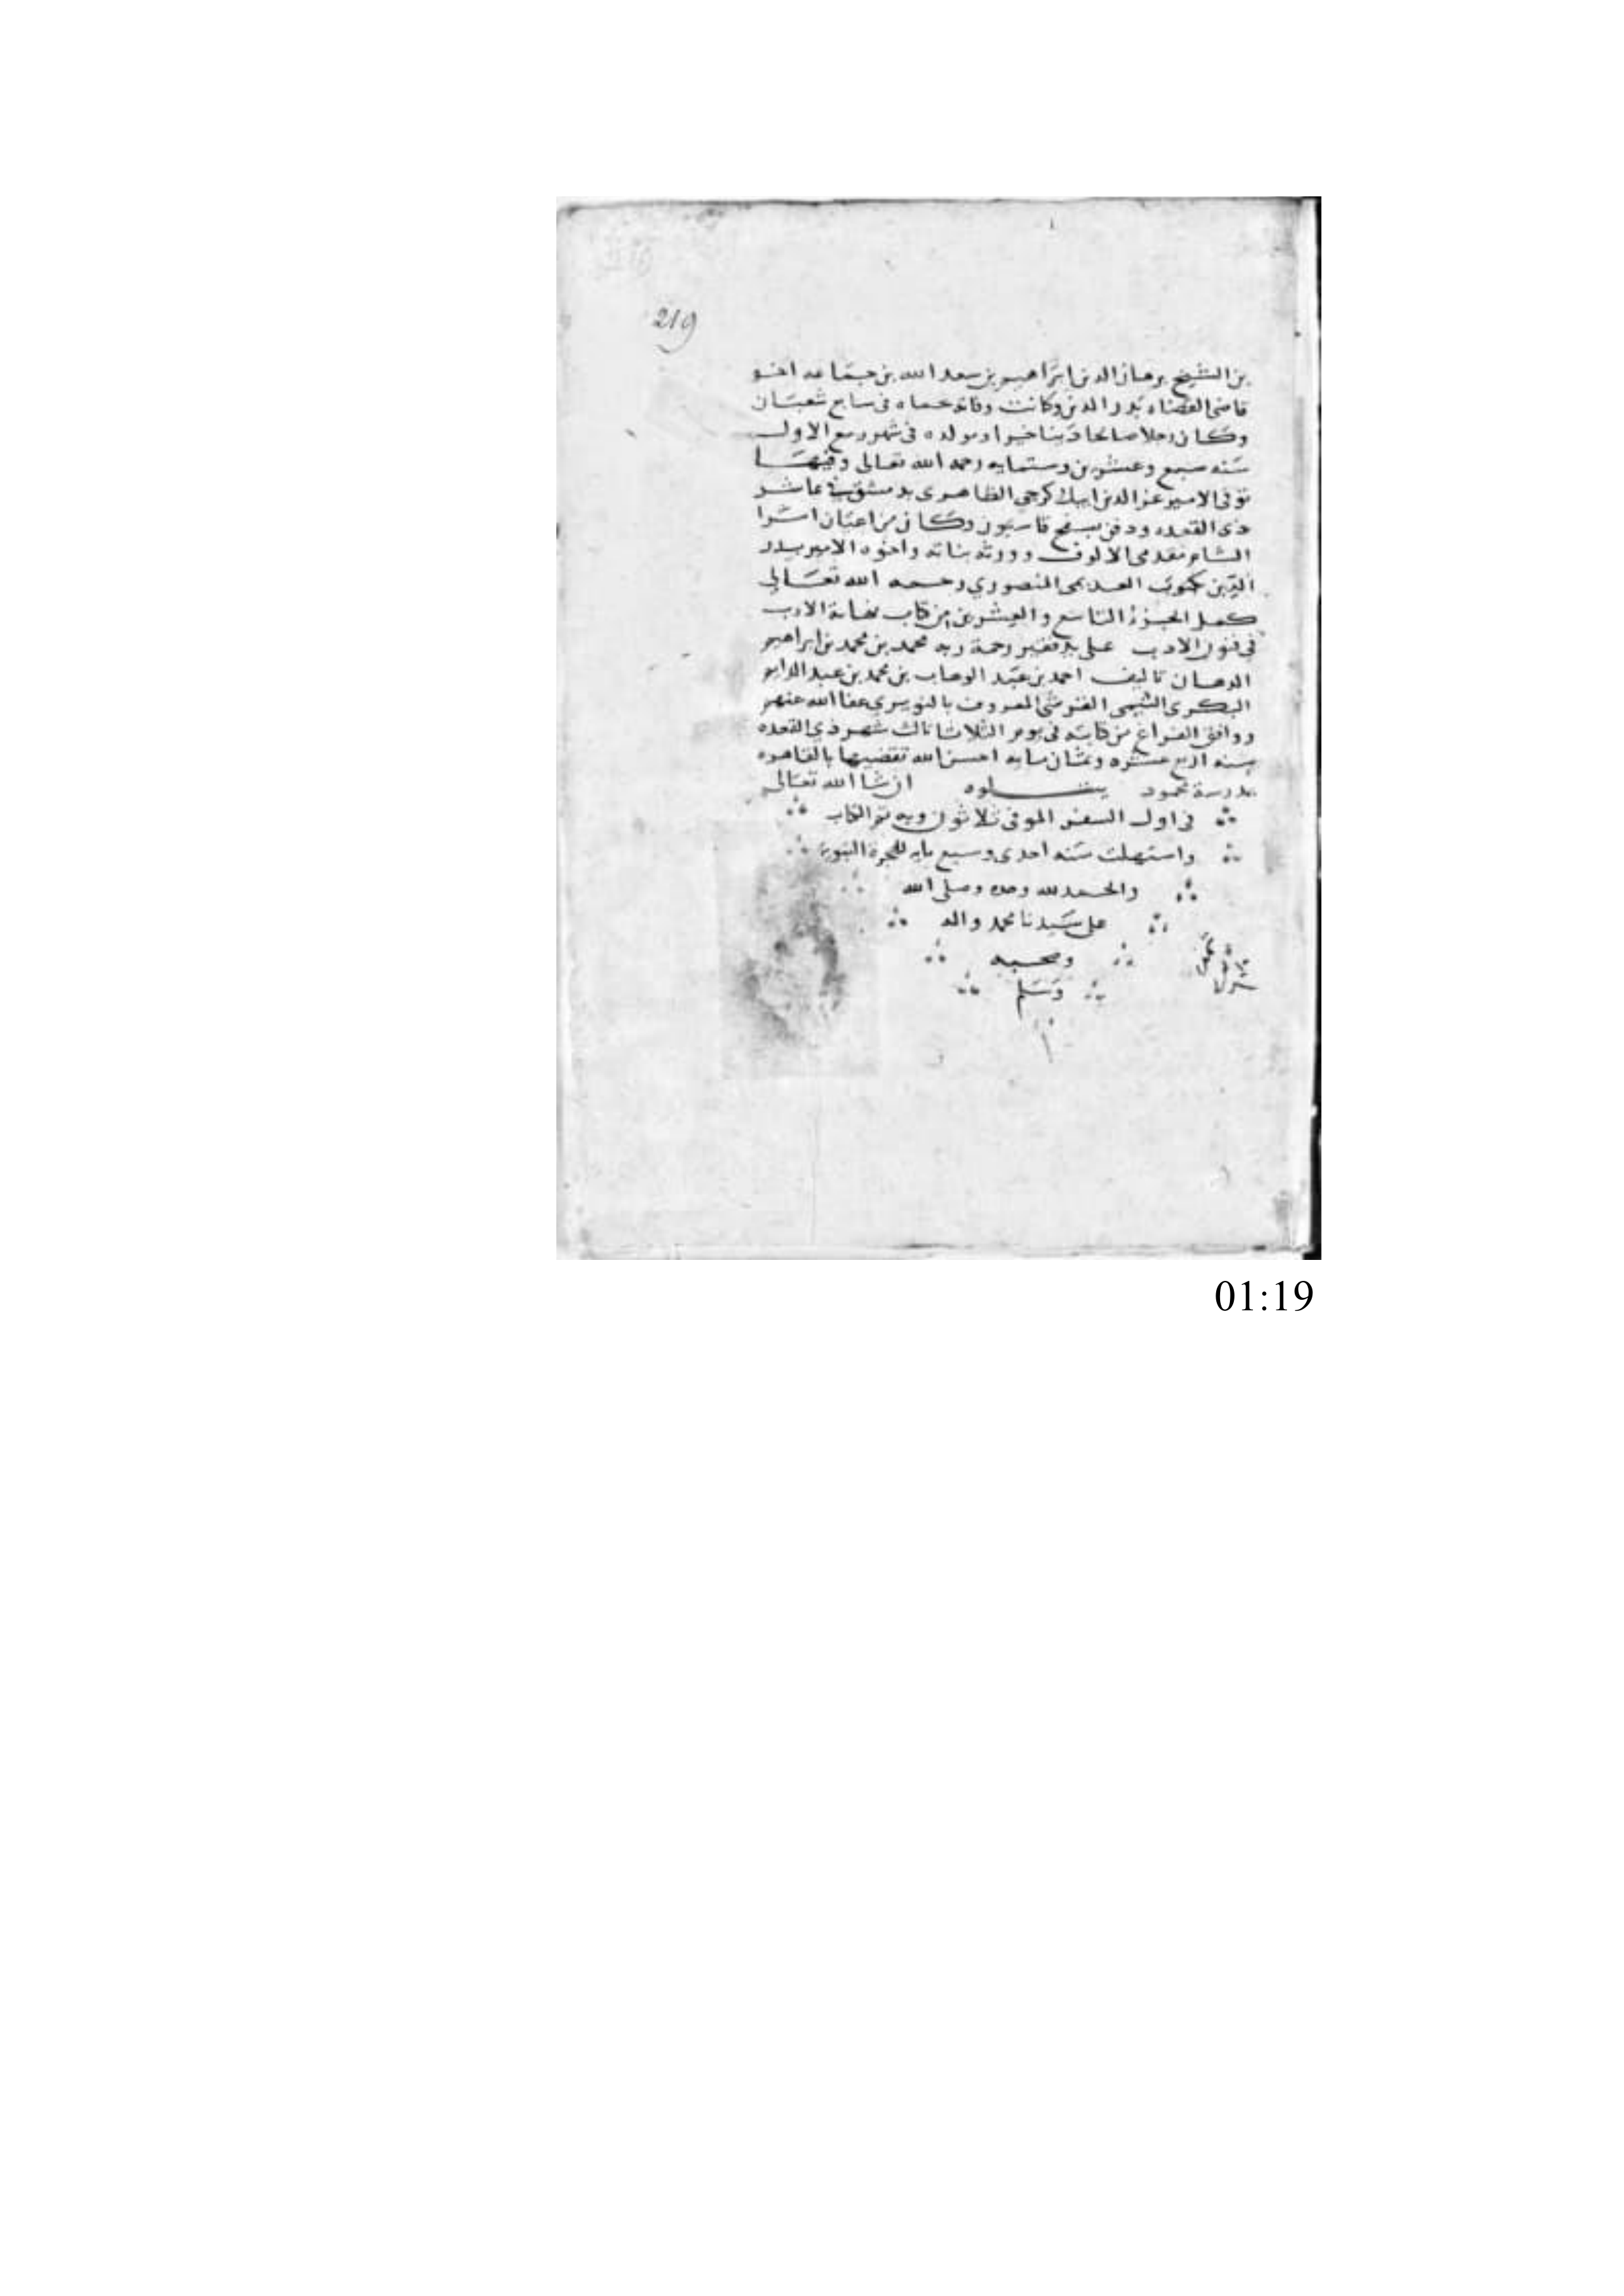 219
بن الشيخ برهان الدين ابراهيم بن سعد الله بن جماعه اخو
قاضى القضاه بدر الدين وكانت وفاته بحماه فى سابع شعبان
وكان رجلا صالحا دينا خيرا ومولده فى شهر ربيع الاول
سنه سبع وعشرين وستمايه رحمه الله تعالى وفيها
توفى الامير عز الدين ايبك كرجي الظاهرى بدمشق في عاشر
ذى القعده ودفن بسفح قاسيون وكان من اعيان امرا
الشام مقدمى الالوف وورثه بناته واخوه الامير بدر
الدين بكتوت المنصوري رحمه الله تعالى
كمل الجزء التاسع والعشرين من كتاب نهاية الارب
في فنون الادب على يد فقير رحمة ربه محمد بن محمد بن ابراهيم
الدهان تاليف احمد بن عبد الوهاب بن محمد بن عبد الدايم
البكرى التيمى القرشى المعروف بالنويري عفا الله عنهم
ووافق الفراغ من كتابته فى يوم الثلاثا ثالث شهر ذي القعده
سنه اربع عشره وثمان مايه احسن الله تقضيها بالقاهره
بمدرسة محمود يتلوه ان شا الله تعالى
فى اول السفر الموفى ثلاثون وبه تم الكتاب
واستهلت سنه احدى وسبع مايه للهجرة النبوية
والحمد لله وحده وصلى الله
على سيدنا محمد واله
وصحبه
وسلم
01:19